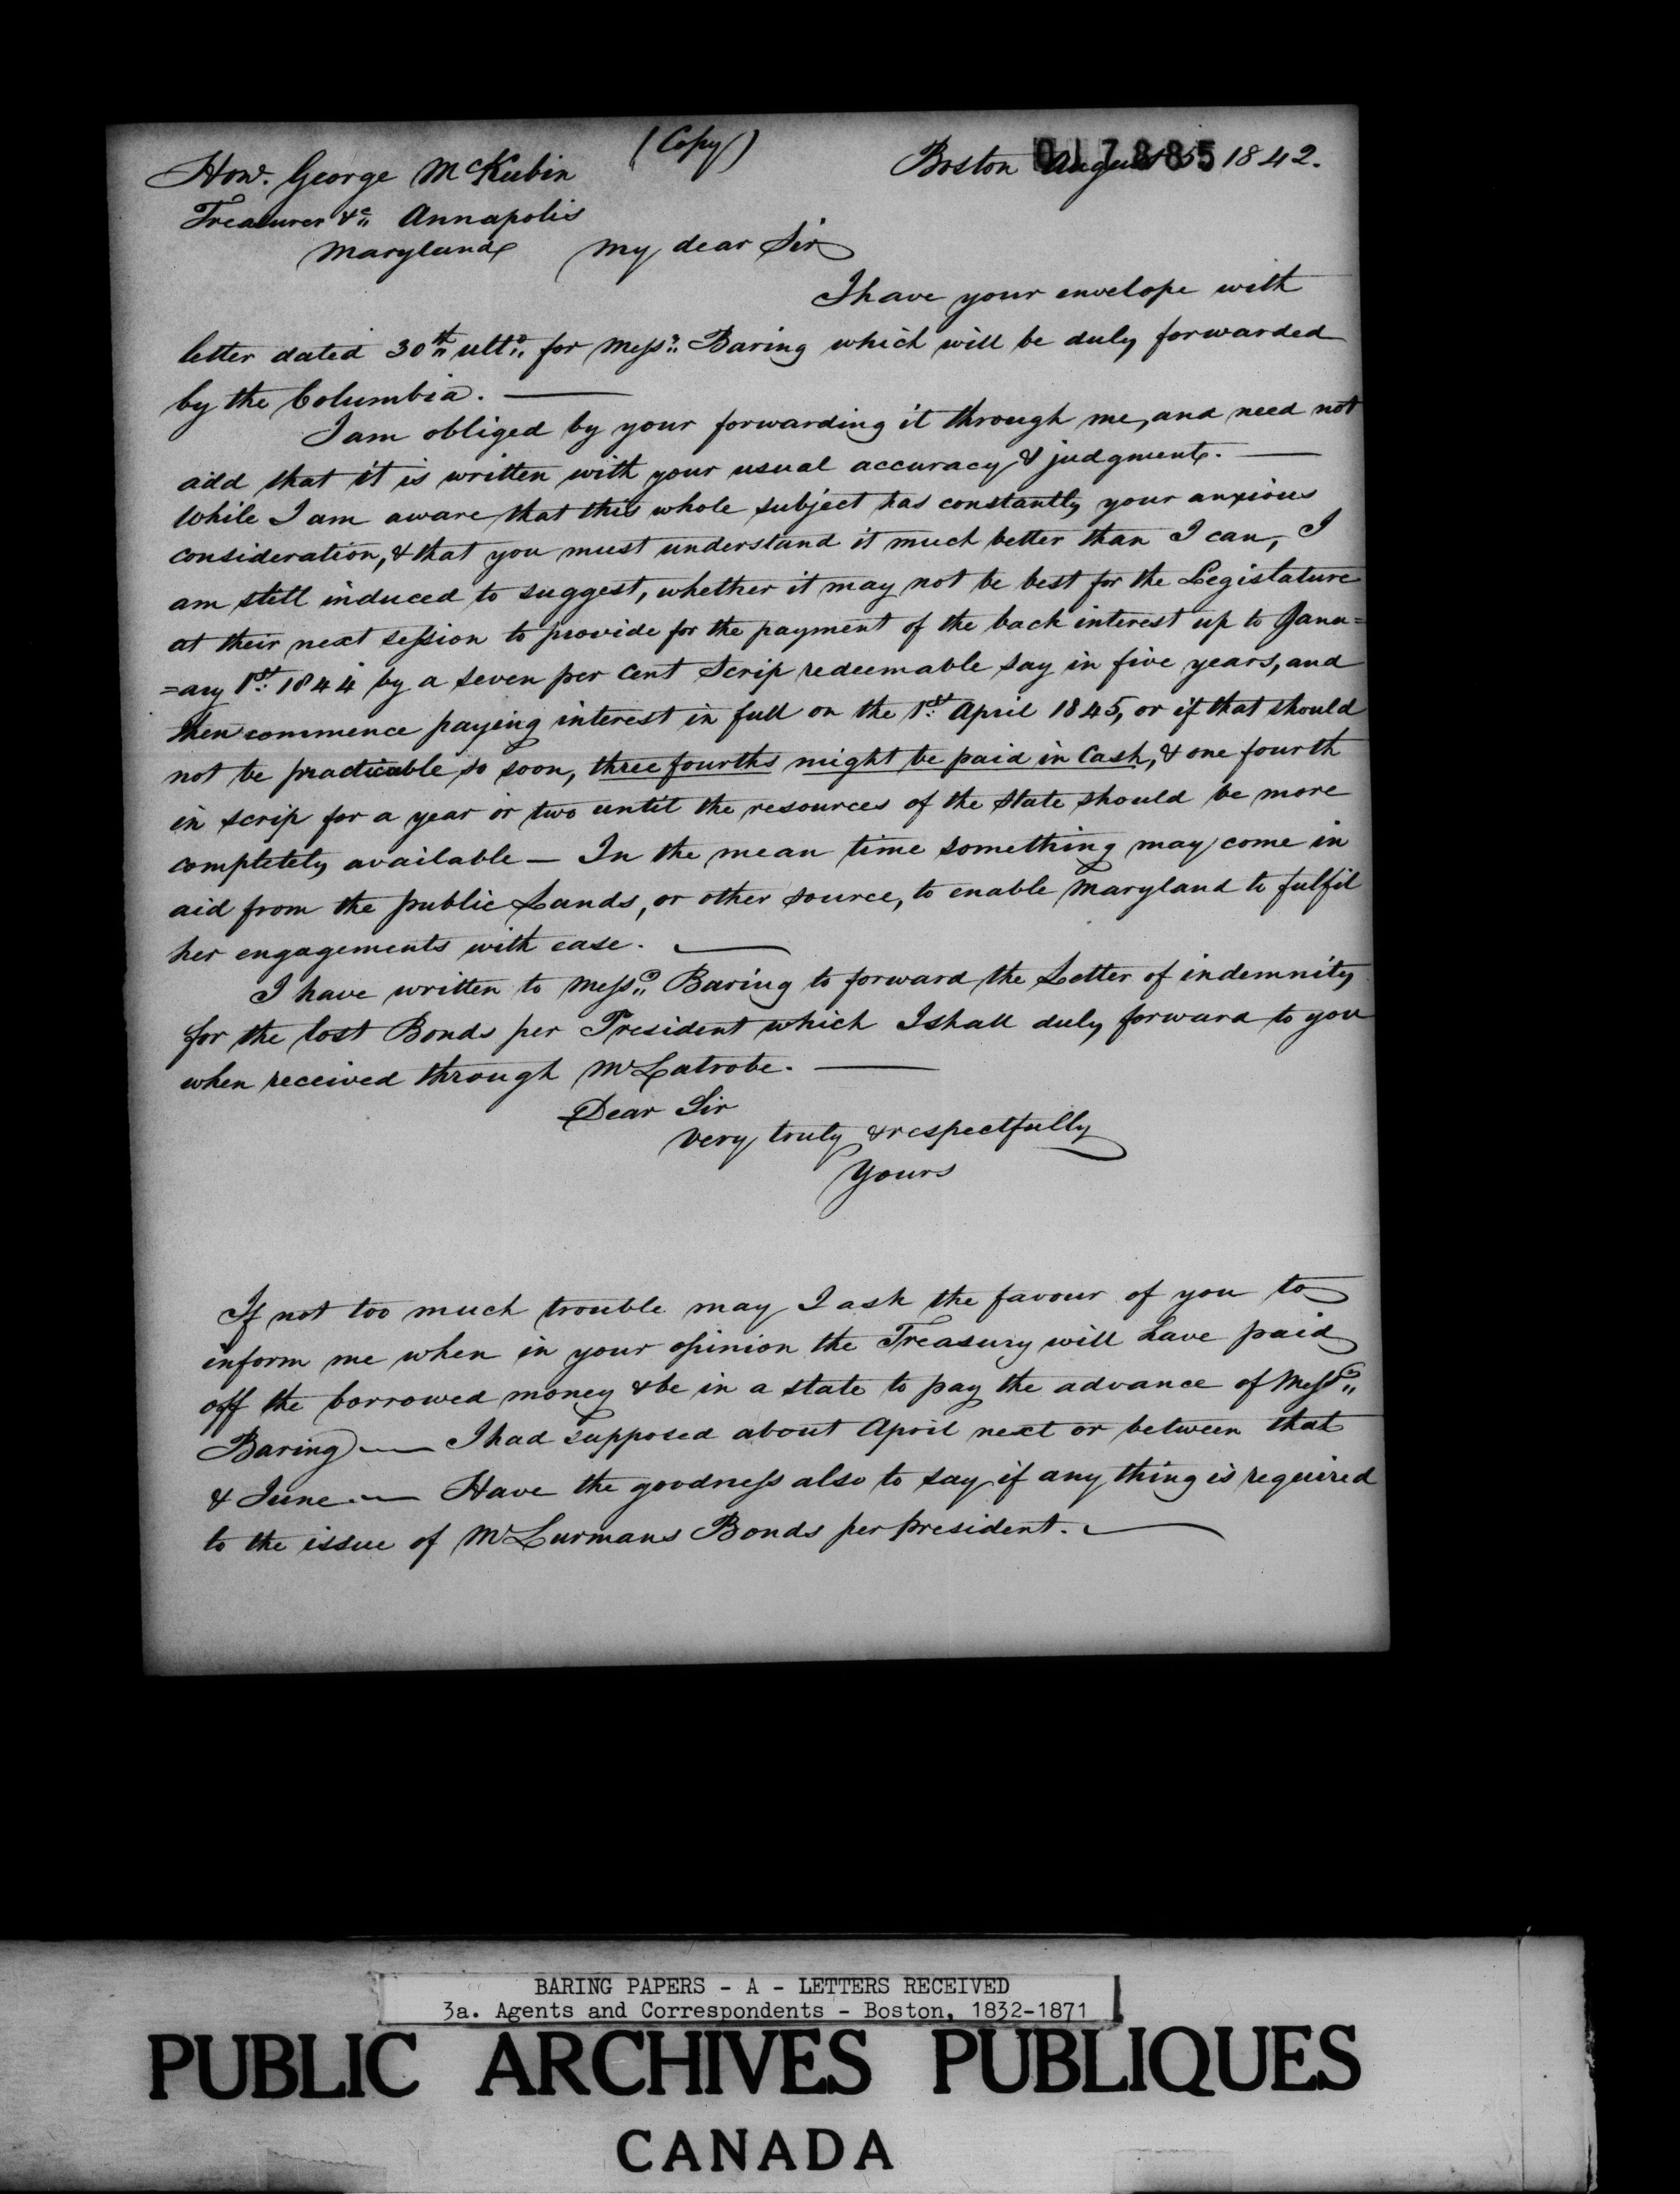 (Copy)
017885
Boston August 5 1842.
Hon. George McKubin
Treasurer &c Annapolis
Maryland My dear Sir
I have your envelope with
letter dated 30th ulto. for Messrs. Baring which will be duly forwarded
by the Columbia. —
I am obliged by your forwarding it through me, and need not
add that it is written with your usual accuracy & judgment. —
While I am aware that this whole subject has constantly your anxious
consideration, & that you must understand it much better than I can, I
am still induced to suggest, whether it may not be best for the Legislature
at their next session to provide for the payment of the back interest up to Janu=
=ary 1st. 1844 by a seven per cent Scrip redeemable say in five years, and
then commence paying interest in full on the 1st. April 1845, or if that should
not be practicable so soon, three fourths might be paid in Cash, & one fourth
in scrip for a year or two until the resources of the State should be more
completely available — In the mean time something may come in
aid from the public Lands, or other source, to enable Maryland to fulfil
her engagements with ease. —
I have written to Messrs. Baring to forward the Letter of indemnity
for the lost Bonds per President which I shall duly forward to you
when received through Mr Latrobe. —
Dear Sir
Very truly & respectfully
Yours
If not too much trouble may I ask the favour of you to
inform me when in your opinion the Treasury will have paid
off the borrowed money & be in a state to pay the advance of Messrs.
Baring — I had supposed about April next or between that
& June. — Have the goodness also to say if any thing is required
to the issue of Mr Lurmans Bonds per president. —
BARING PAPERS - A - LETTERS RECEIVED
3a. Agents and Correspondents - Boston, 1832-1871
PUBLIC ARCHIVES PUBLIQUES
CANADA